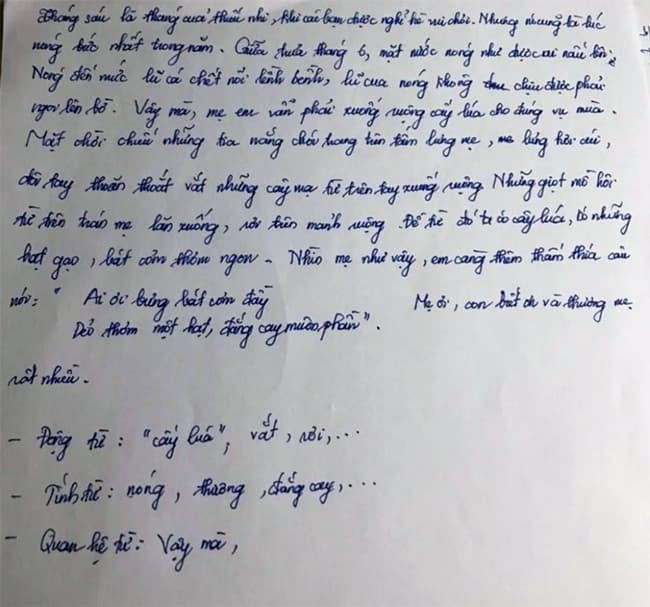 Tháng sáu là tháng của thiếu nhi, khi các bạn được nghỉ hè vui chơi. Nhưng nhưng là lúc
nóng bức nhất trong năm. Giữa trưa tháng 6, mặt nước nóng như được ai nấu lên
Nóng đến mức lũ cá chết nổi lềnh bềnh, lũ cua nóng không chịu được phải
ngoi lên bờ. Vậy mà, mẹ em vẫn phải xuống ruộng cấy lúa cho đúng vụ mùa.
Mặt trời chiếu những tia nắng chói trang trên tấm lưng mẹ, mẹ lưng hơi cúi,
đôi tay thoăn thoắt vắt những cây mạ từ trên tay xuống ruộng. Những giọt mồ hôi
từ trên trán mẹ lăn xuống, rơi trên mảnh ruộng. Để từ đó ta có cây lúa, có những
hạt gạo, bát cơm thơm ngon. Nhìn mẹ như vậy, em càng thêm thấm thía câu
nói: " Ai ơi bưng bát cơm đầy Mẹ ơi, con biết ơn và thương mẹ
Dẻo thơm một hạt, đắng cay muôn phần".
rất nhiều.
- Động từ: "cấy lúa", vắt, rơi,...
- Tính từ: nóng, thương, đắng cay,...
- Quan hệ từ: Vậy mà,